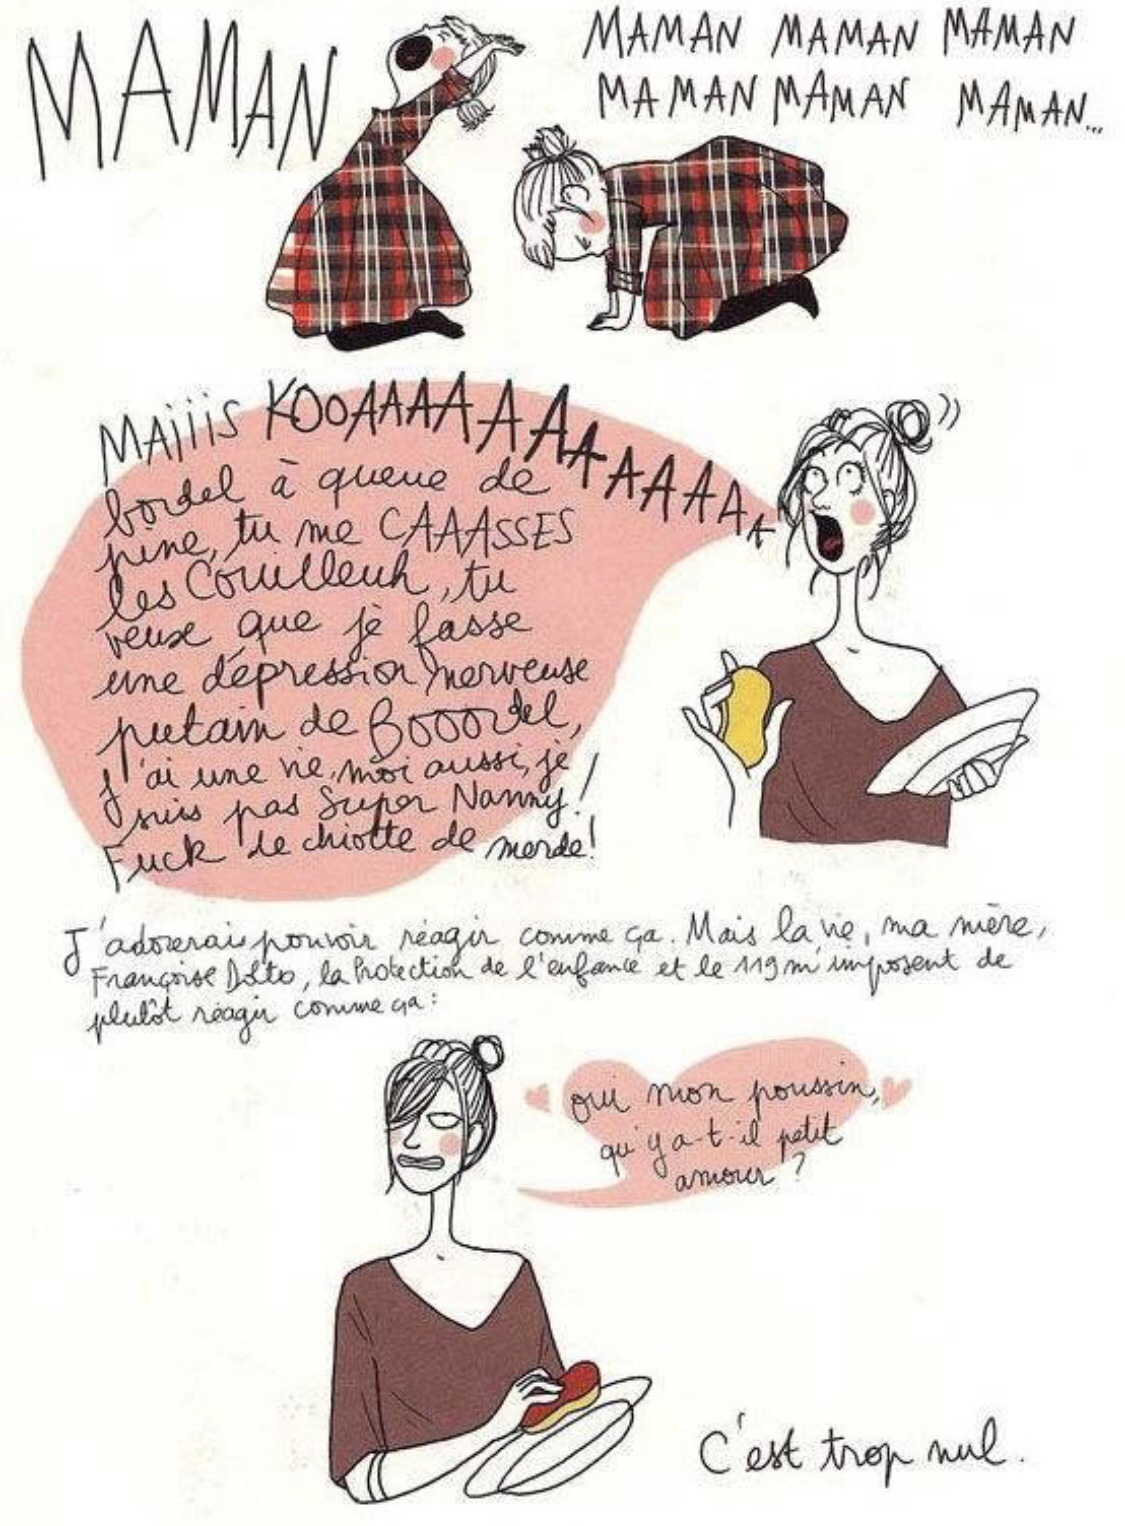 MAMAN
MAMAN MAMAN MAMAN
MAMAN MAMAN MAMAN...
MAiiiS KOOAAAAAAAAAAAAA
bordel à queue de
pine, tu me CAAASSES
les Couilleuh, tu
veux que je fasse
une dépression nerveuse
putain de BOOOrdel,
j'ai une vie, moi aussi, je
suis pas Super Nanny!
Fuck de chiotte de merde!
J'adorerais pouvoir réagir comme ça. Mais la vie, ma mère,
Françoise Dolto, la Protection de l'enfance et le 119 m'imposent de
plutôt réagir comme ça:
oui mon poussin,
qu'y a-t-il petit
amour?
C'est trop nul.